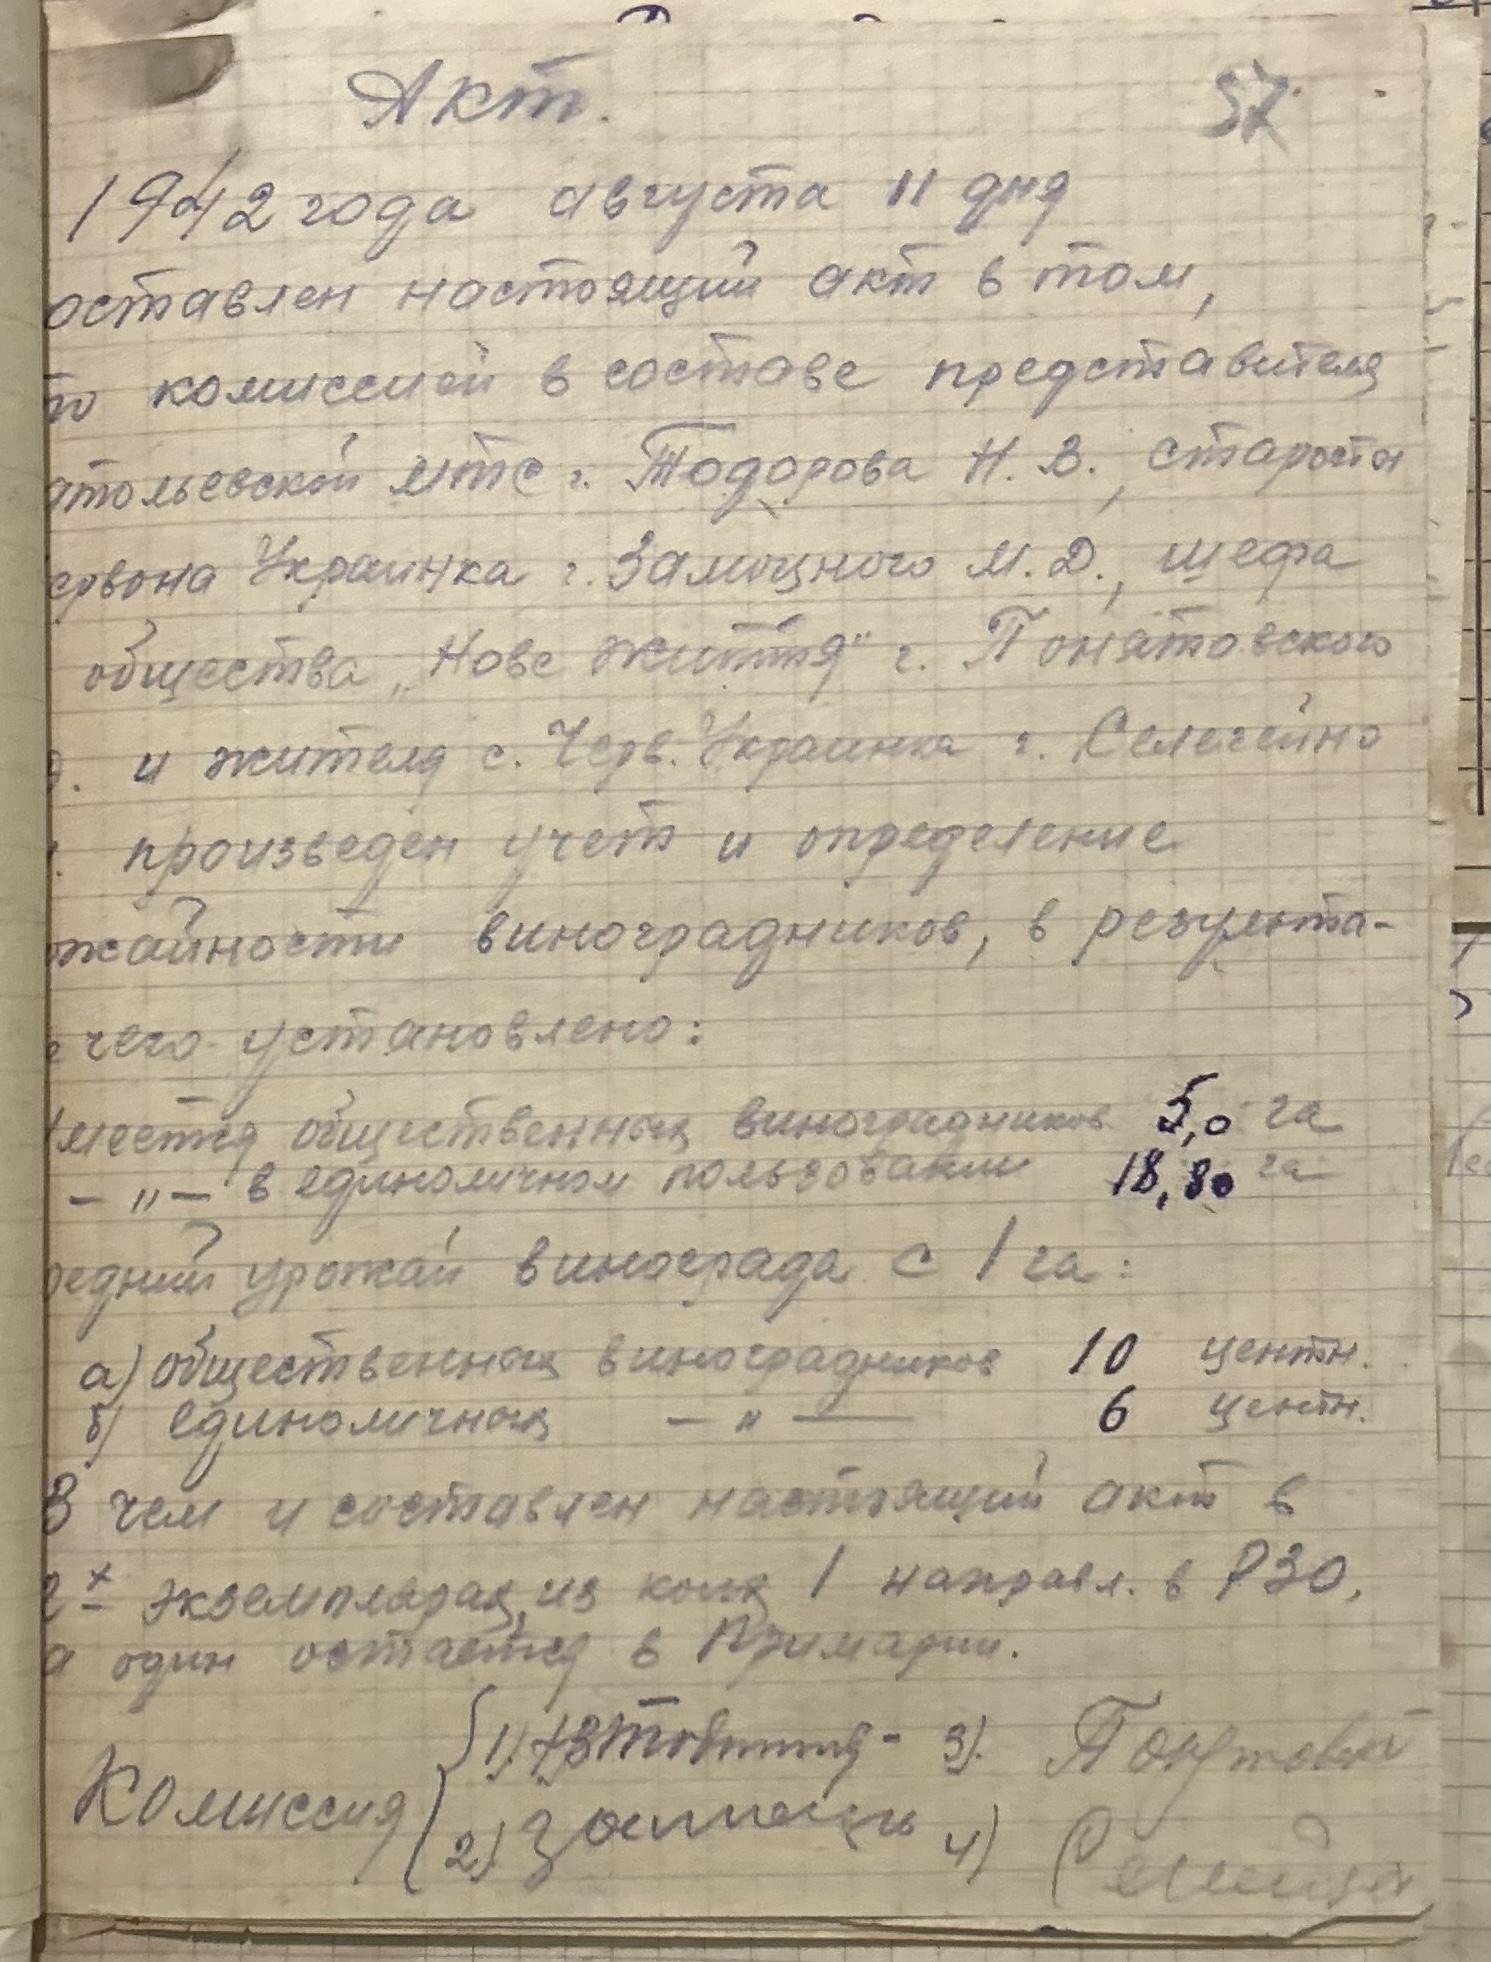 Акт.
57
1942 года августа 11 дня
оставлен настоящий акт в том,
то комиссией в составе представителя
атольевской МТС г. Тодорова Н. В., старосты
ервона Украинка г. Замоцного М. Д., шефа
общества „Нове життя" г. Понятовского
и жителя с. Черв. Украинка г. Селегейно
произведен учет и определение
ожайности виноградников, в результа-
е чего установлено:
меется общественных виноградников 5,0 га
— „ — в единоличном пользовании 18,80 га
редний урожай винограда с 1 га:
а) общественных виноградников 10 центн.
б) единоличных — „ — 6 центн.
В чем и составлен настоящий акт в
2х экземплярах, из коих 1 направл. в РЗО,
а один остается в Примарии.
1) 3).
Комиссия
2) 4)